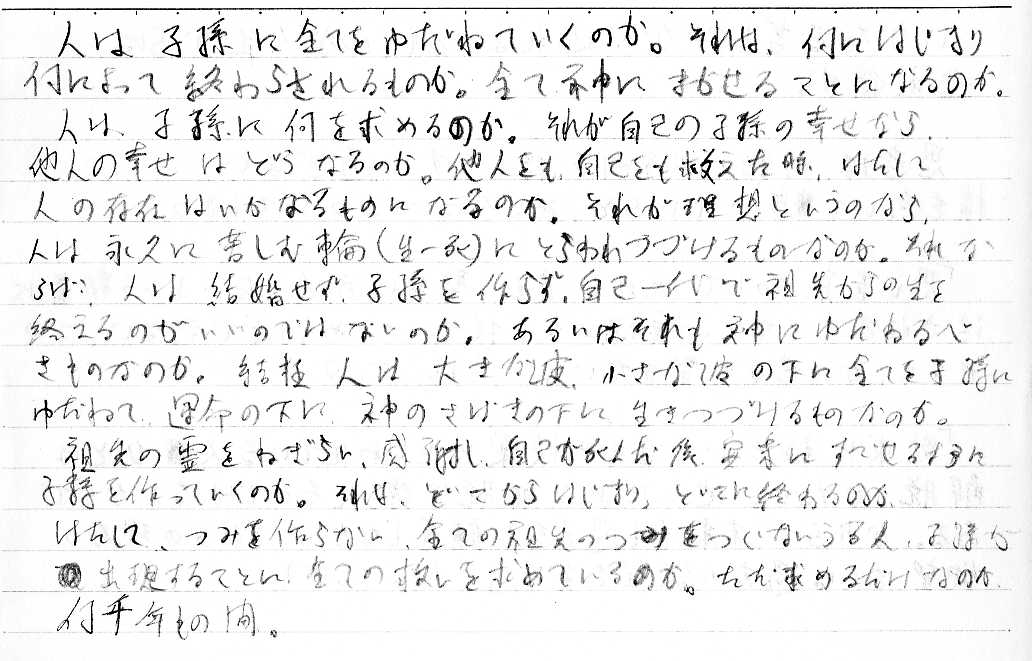 人は 子孫 に 全てを ゆだねていくのか。それは、何にはじまり
何によって 終わらされるものか。全て 神に まかせる ことに なるのか。
人は、子孫に 何を求めるのか。それが自己の子孫の幸せなら、
他人の幸せ は どう なるのか。他人をも、自己をも救えた時、はたして
人の存在 は いかなるものに なるのか。それが 理想というのなら、
人は 永久に 苦しむ 輪(生-死)に とらわれつづけるものなのか。それな
らば、人は 結婚せず、子孫を 作らず、自己一代で 祖先からの生を
終えるのが いいのでは ないのか。あるいはそれも 神に ゆだねるべ
きものなのか。結極 人は 大きな波、小さな波 の下に 全てを子孫に
ゆだねて、運命の下に、神のさばきの下に 生きつづけるものなのか。
祖先の霊をねぎらい、感謝し、自己が死んだ後、安楽に すごせる様に
子孫を作っていくのか。それは、どこからはじまり、どこに終わるのか。
はたして、つみを作らない、全ての祖先のつみをつぐないうる人、子孫が
出現することに、全ての救いを求めているのか。ただ求めるだけなのか
何千年もの間。